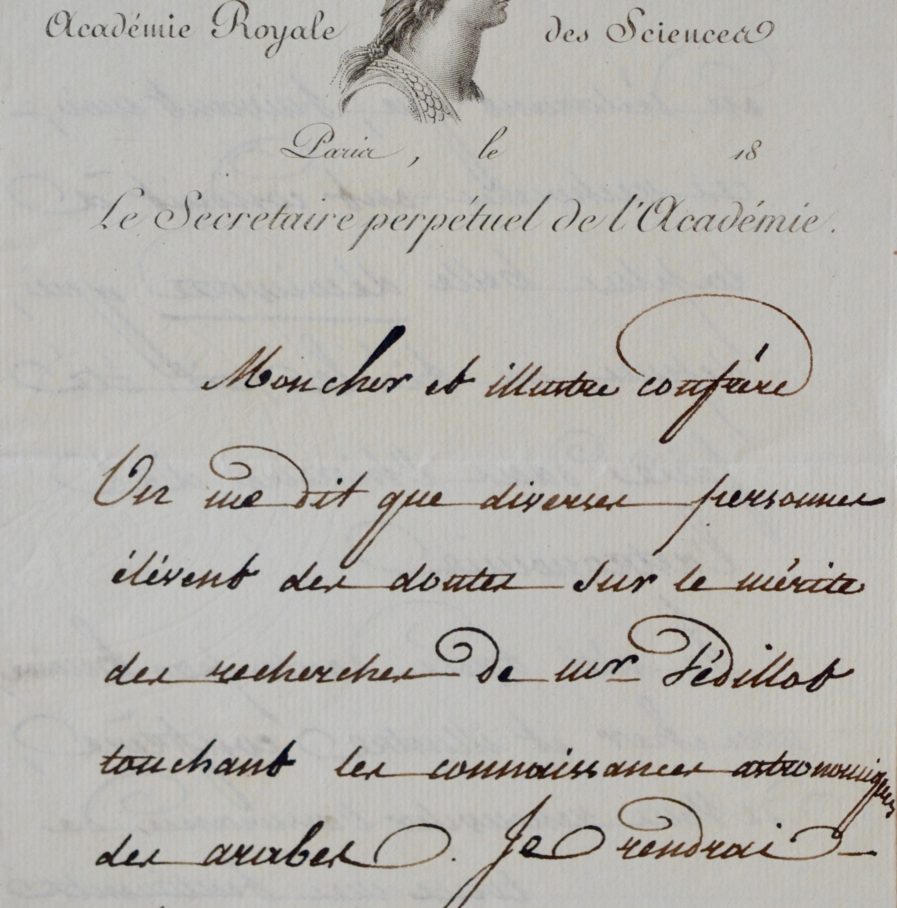 Académie Royale des Sciences
Paris, le 18
Le Secrétaire perpétuel de l'Académie.
Mon cher et illustre confrère
On me dit que diverses personnes
élèvent des doutes sur le mérite
des recherches de mr Sédillot
touchant les connaissances astronomiques
des arabes. Je rendrai